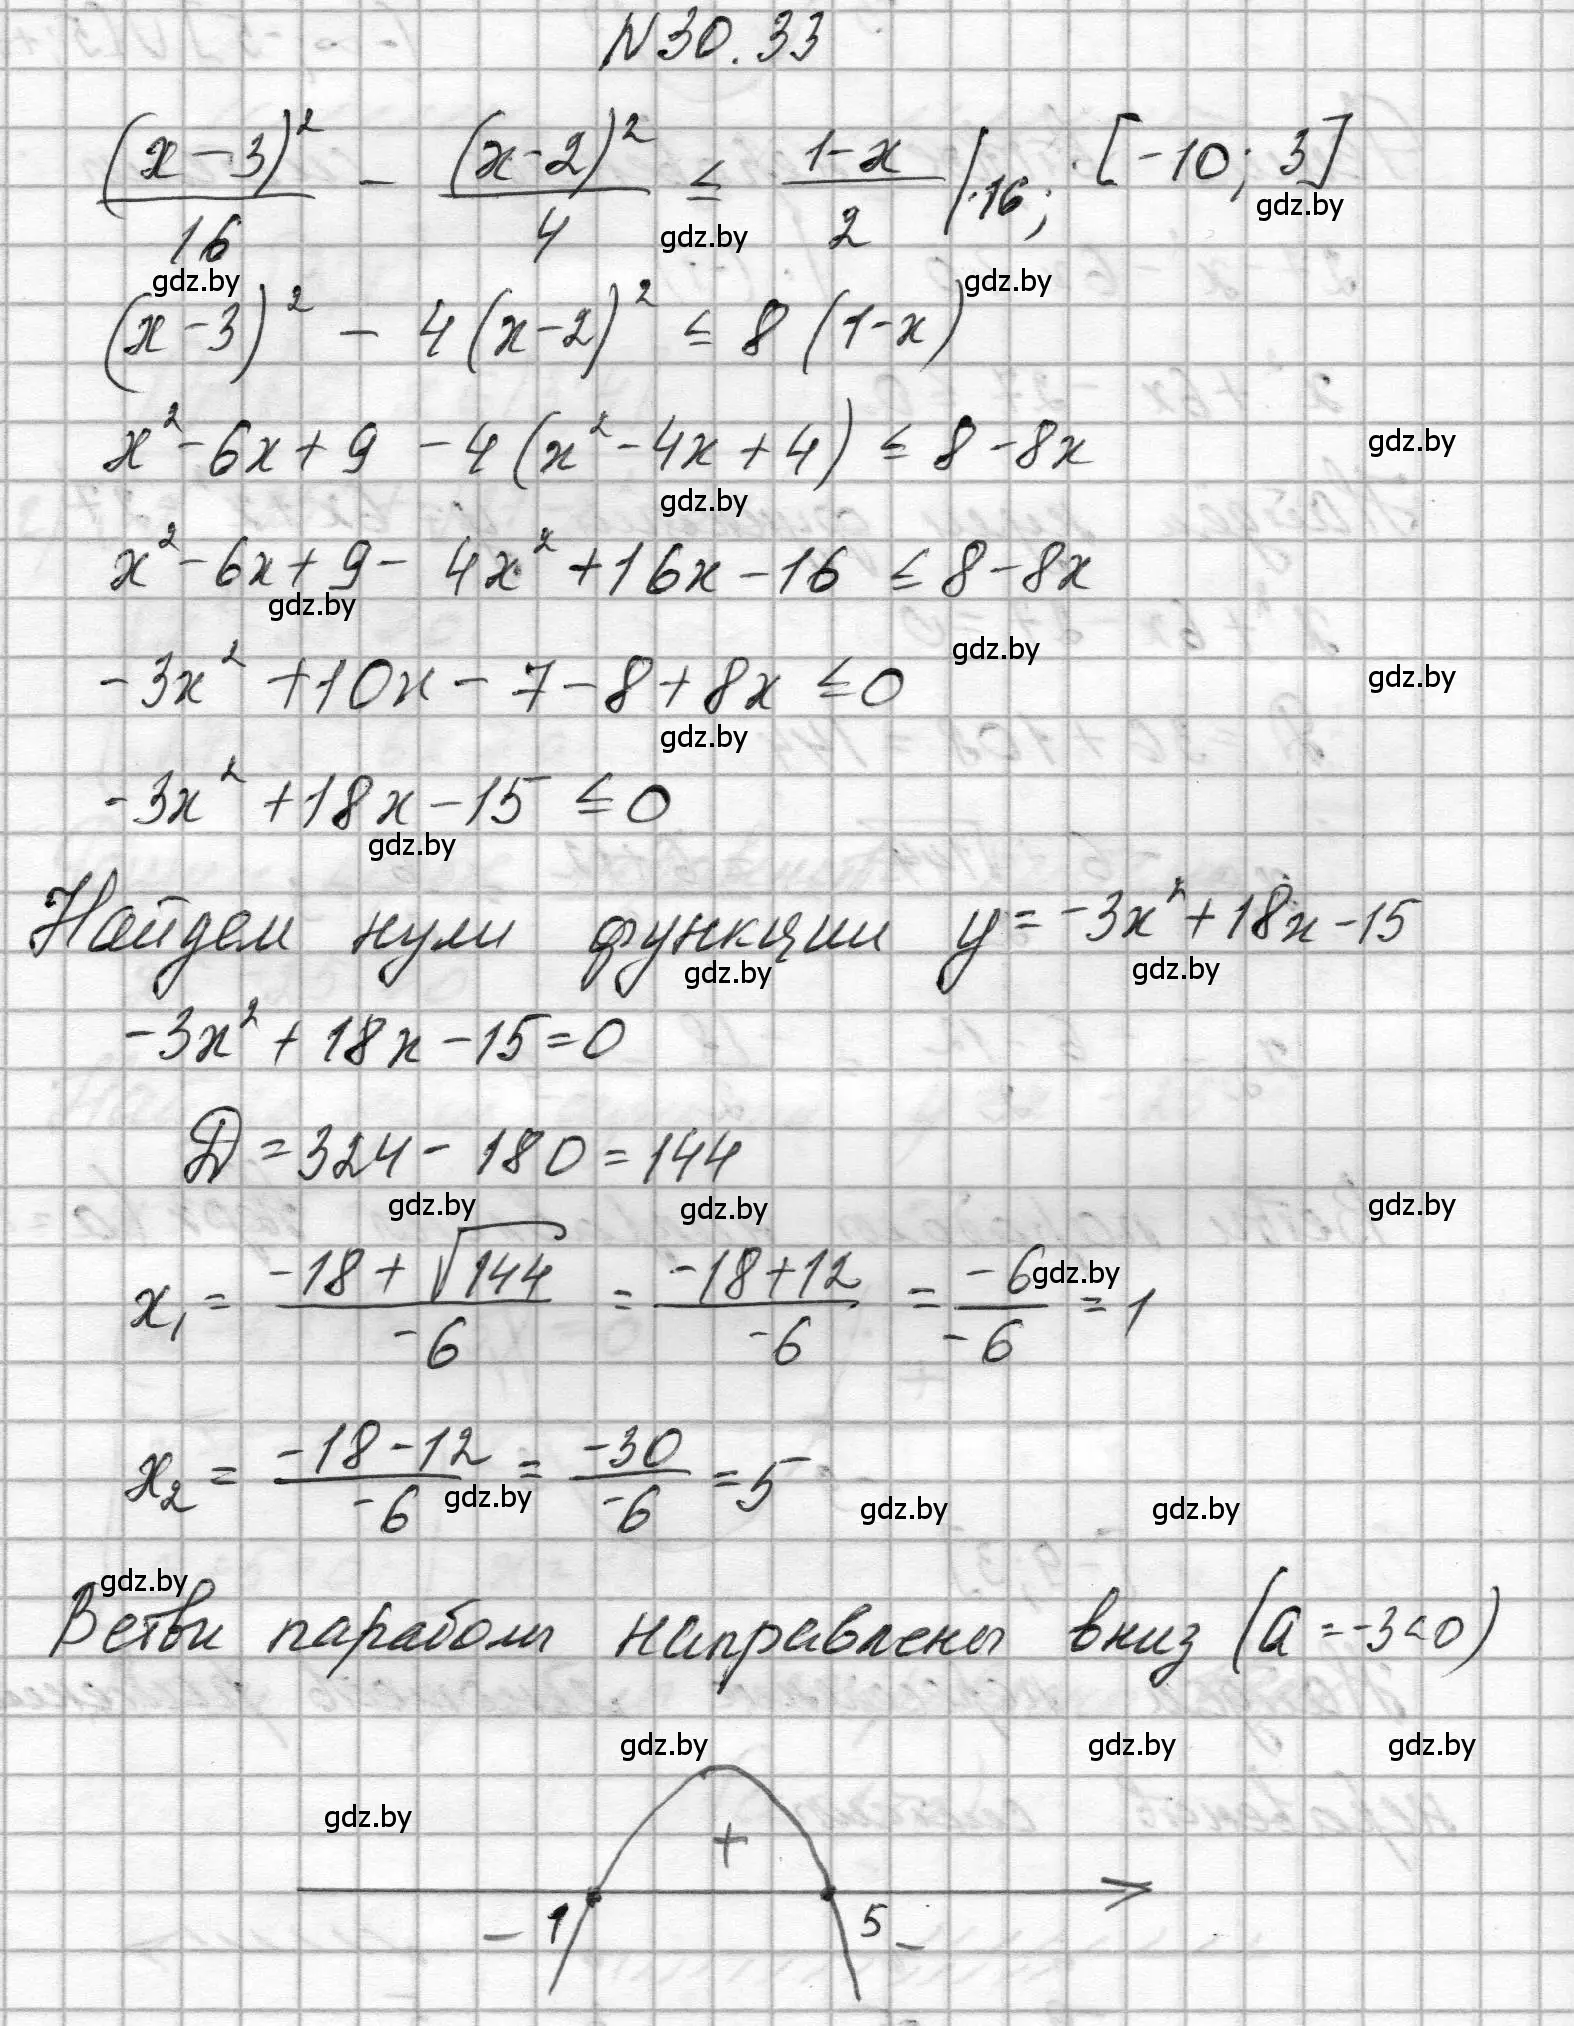 N30.33
(x-3)²/16 - (x-2)²/4 ≤ (1-x)/2 |·16; [-10; 3]
gdz.by
gdz.by
gdz.by gdz.by
(x-3)² - 4(x-2)² ≤ 8(1-x)
x²-6x+9 -4(x²-4x+4) ≤ 8-8x
gdz.by
gdz.by
x²-6x+9- 4x²+16x-16 ≤ 8-8x
gdz.by
gdz.by
-3x²+10x-7-8+8x ≤0
gdz.by
gdz.by
-3x²+18x-15 ≤0
gdz.by
Найдем нули функции y=-3x²+18x-15
gdz.by gdz.by
-3x²+18x-15=0
D=324-180=144
gdz.by gdz.by gdz.by
x₁ = (-18+√144)/-6 = (-18+12)/-6 = -6/-6 = 1
gdz.by
x₂ = (-18-12)/-6 = -30/-6 = 5
gdz.by gdz.by gdz.by
gdz.by
Ветви параболы направлены вниз (a=-3<0)
gdz.by gdz.by gdz.by
gdz.by
+
- 1 5 -